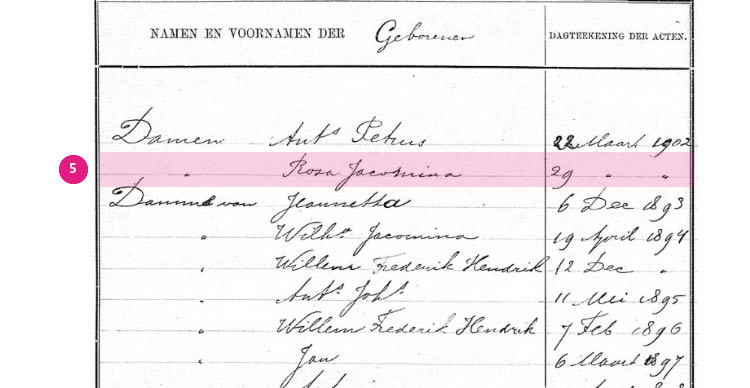 NAMEN EN VOORNAMEN DER Geborenen DAGTEEKENING DER ACTEN.
Damen Ants Petrus 22 Maart 1902
5 " Rosa Jacomina 29 " "
Damme van Jeannetta 6 Dec 1893
" Wilha Jacomina 19 April 1894
" Willem Frederik Hendrik 12 Dec "
" Ants Johs 11 Mei 1895
" Willem Frederik Hendrik 7 Feb 1896
" Jan 6 Maart 1897